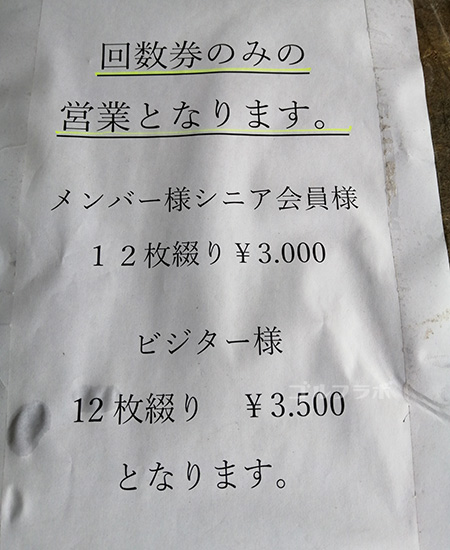 回数券のみの
営業となります。
メンバー様シニア会員様
１２枚綴り￥3.000
ビジター様
ゴルフラボ
12枚綴り　￥3.500
となります。